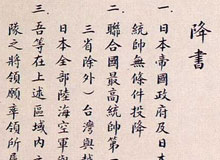 降書
一、日本帝國政府及日本
統帥無條件投降
二、聯合國最高統帥第一
三省除外)台灣與越
日本全部陸海空軍與
三、吾等在上述區域內之
隊之將領願率領所屬